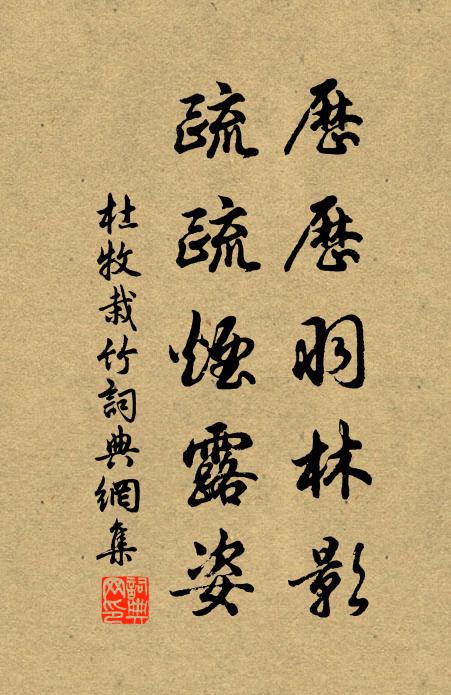 歷歷羽林影
疏疏煙露姿
杜牧栽竹詞典網集
詞典網印